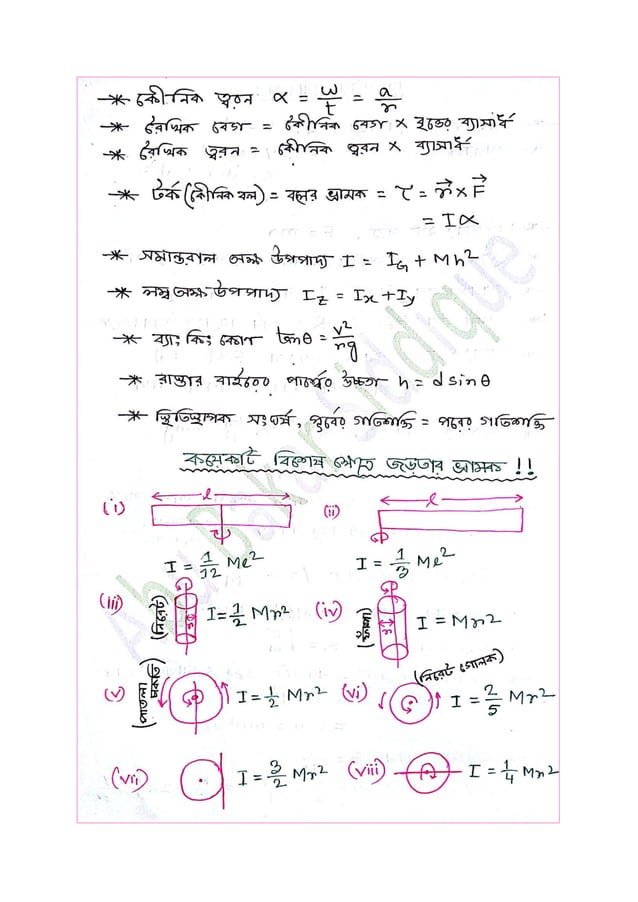 * কৌনিক ত্বরন α = ω/t = a/r
* রৈখিক বেগ = কৌনিক বেগ × বৃত্তের ব্যাসার্ধ
* রৈখিক ত্বরন = কৌনিক ত্বরন × ব্যাসার্ধ
* টর্ক (কৌনিক বল) = বলের ভ্রামক = τ = r⃗ × F⃗
= Iα
* সমান্তরাল অক্ষ উপপাদ্য I = I_G + Mh²
* লম্ব অক্ষ উপপাদ্য I_z = I_x + I_y
* ব্যাং কিং কোণ tanθ = v²/rg
* রাস্তার বাইরের পার্শ্বের উচ্চতা h = d sinθ
* স্থিতিস্থাপক সংঘর্ষ, পূর্বের গতিশক্তি = পরের গতিশক্তি
কয়েকটি বিশেষ ক্ষেত্রে জড়তার ভ্রামক !!
(i) l (ii) l
I = 1/12 Ml² I = 1/3 Ml²
(iii) (নিরেট) r I = 1/2 Mr² (iv) (ফাঁপা) r I = Mr²
(v) (পাতলা চাকতি) I = 1/2 Mr² (vi) (নিরেট গোলক) I = 2/5 Mr²
(vii) I = 3/2 Mr² (viii) I = 1/4 Mr²
Abu Bakar Siddique